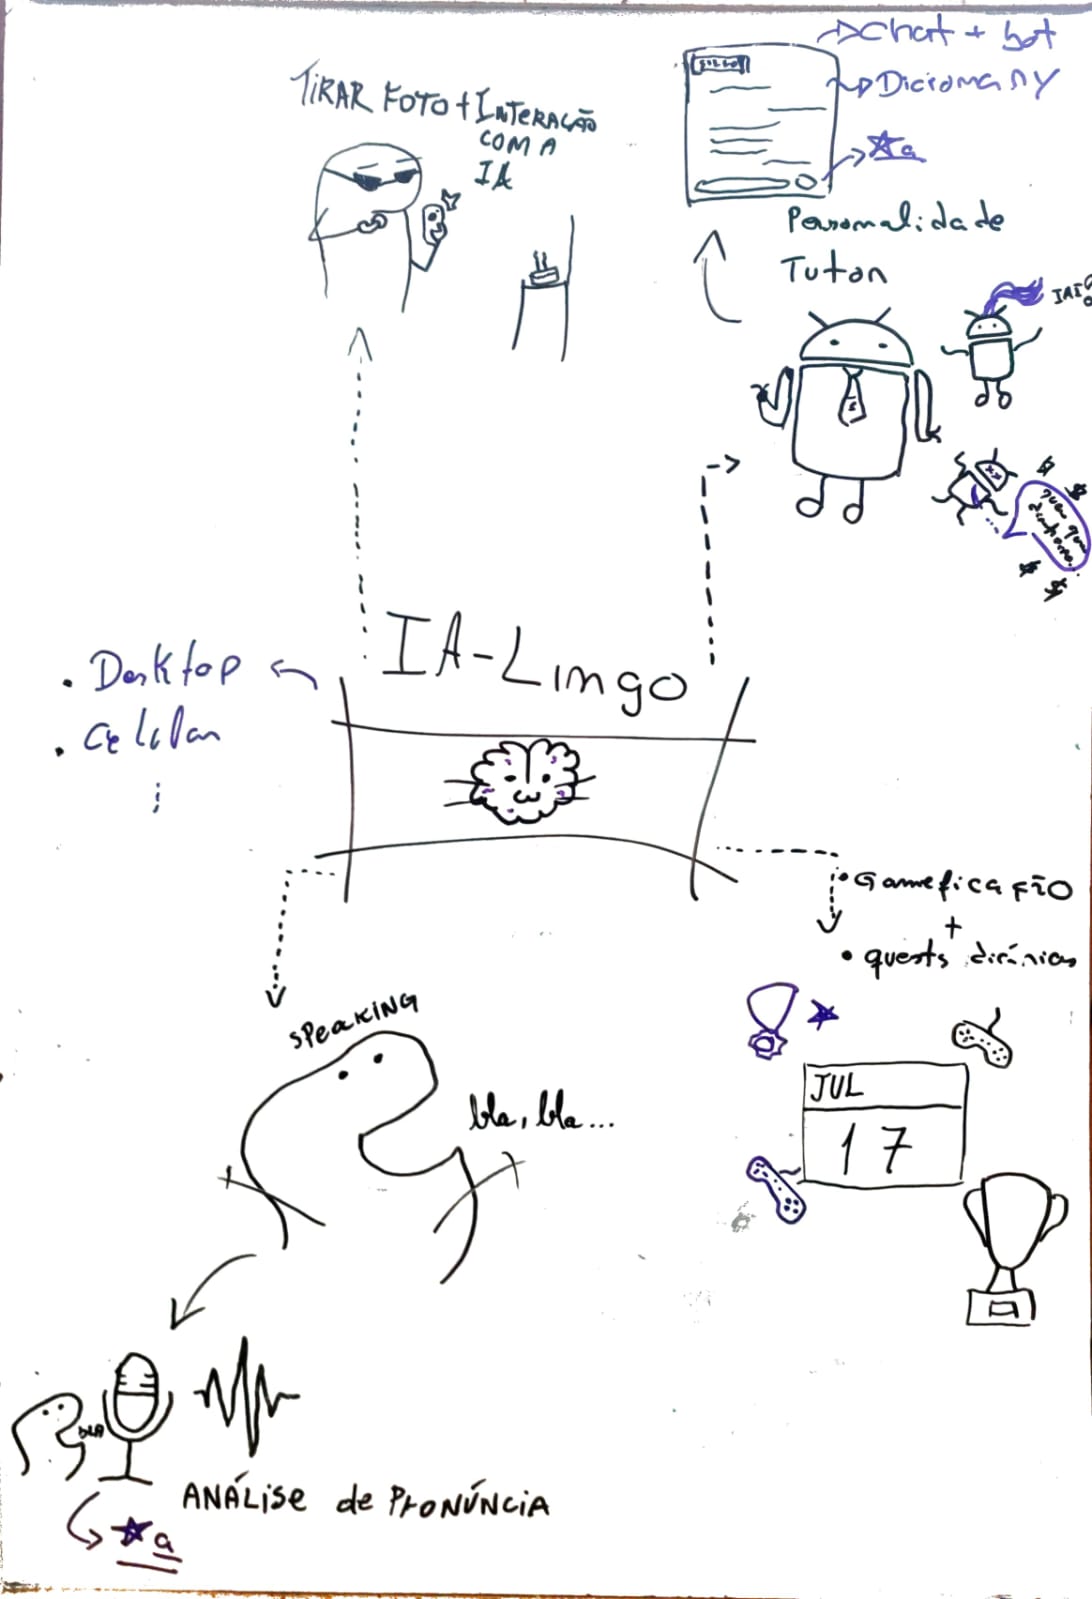 TIRAR FOTO + INTERAÇÃO
COM A
IA
Chat + bot
Dicionary
a
Personalidade
Tutor
IAÍ
$
$
$
$
IA-Lingo
• Desktop
• Celular
• Gameficação
+
• quests diárias
SPEAKING
bla, bla...
JUL
17
BLA
ANÁLISE de PRONÚNCIA
a